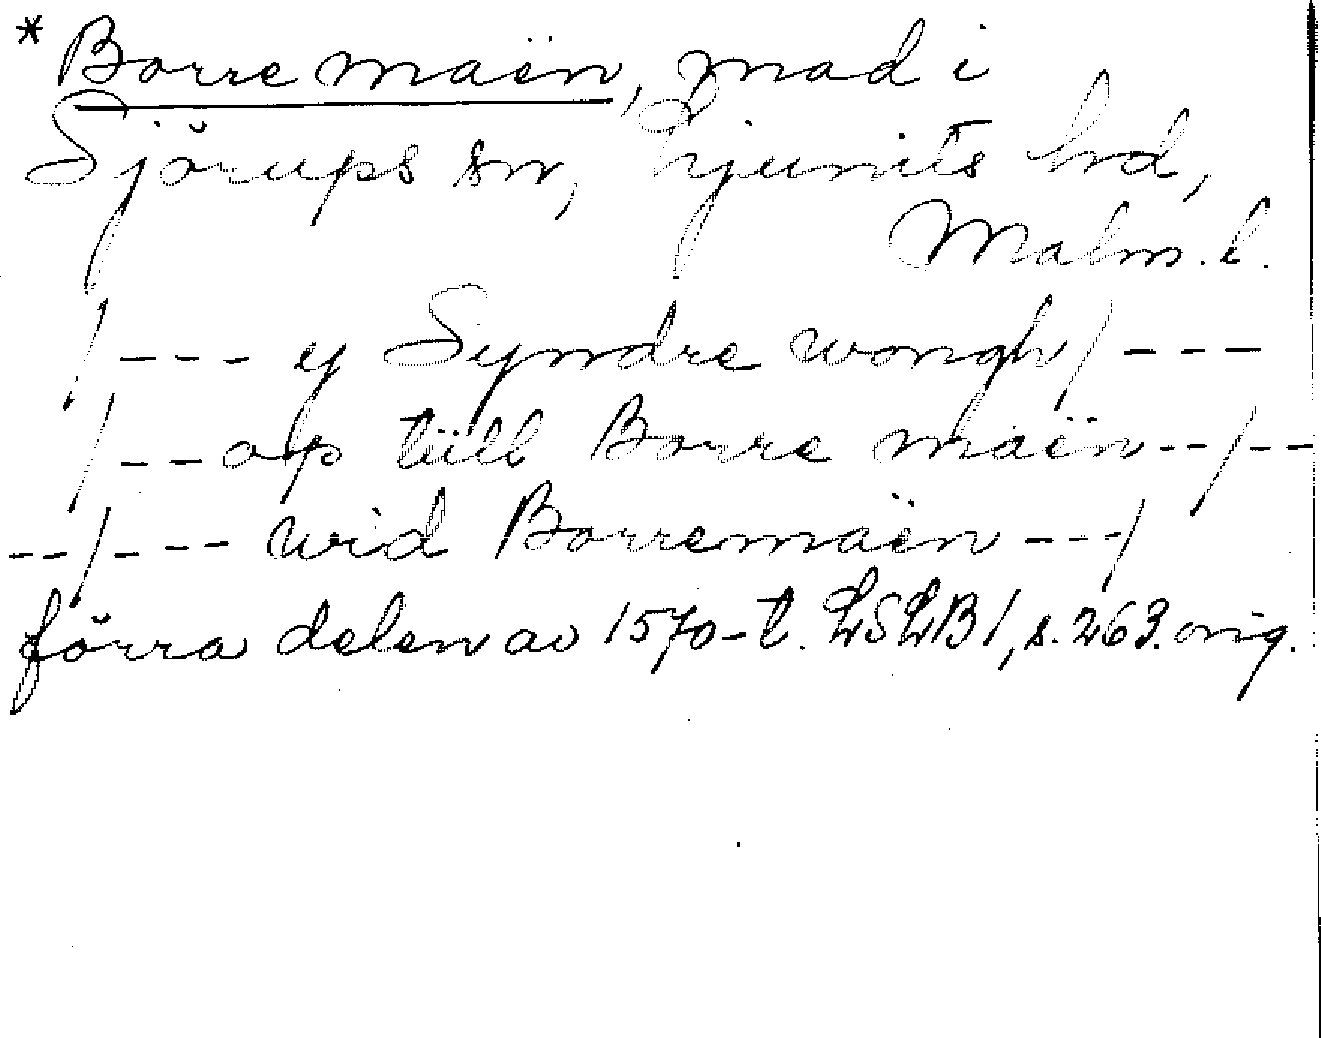 * Borre maën, mad i
Sjörups sn, Ljunits hd,
Malm. l.
/ - - - y Syndre wongh / - - -
/ - - op tiill Borre maën - - / - -
- - / - - - wid Borremaën - - - /
förra delen av 1570-t. LSLB 1, s. 263. orig.